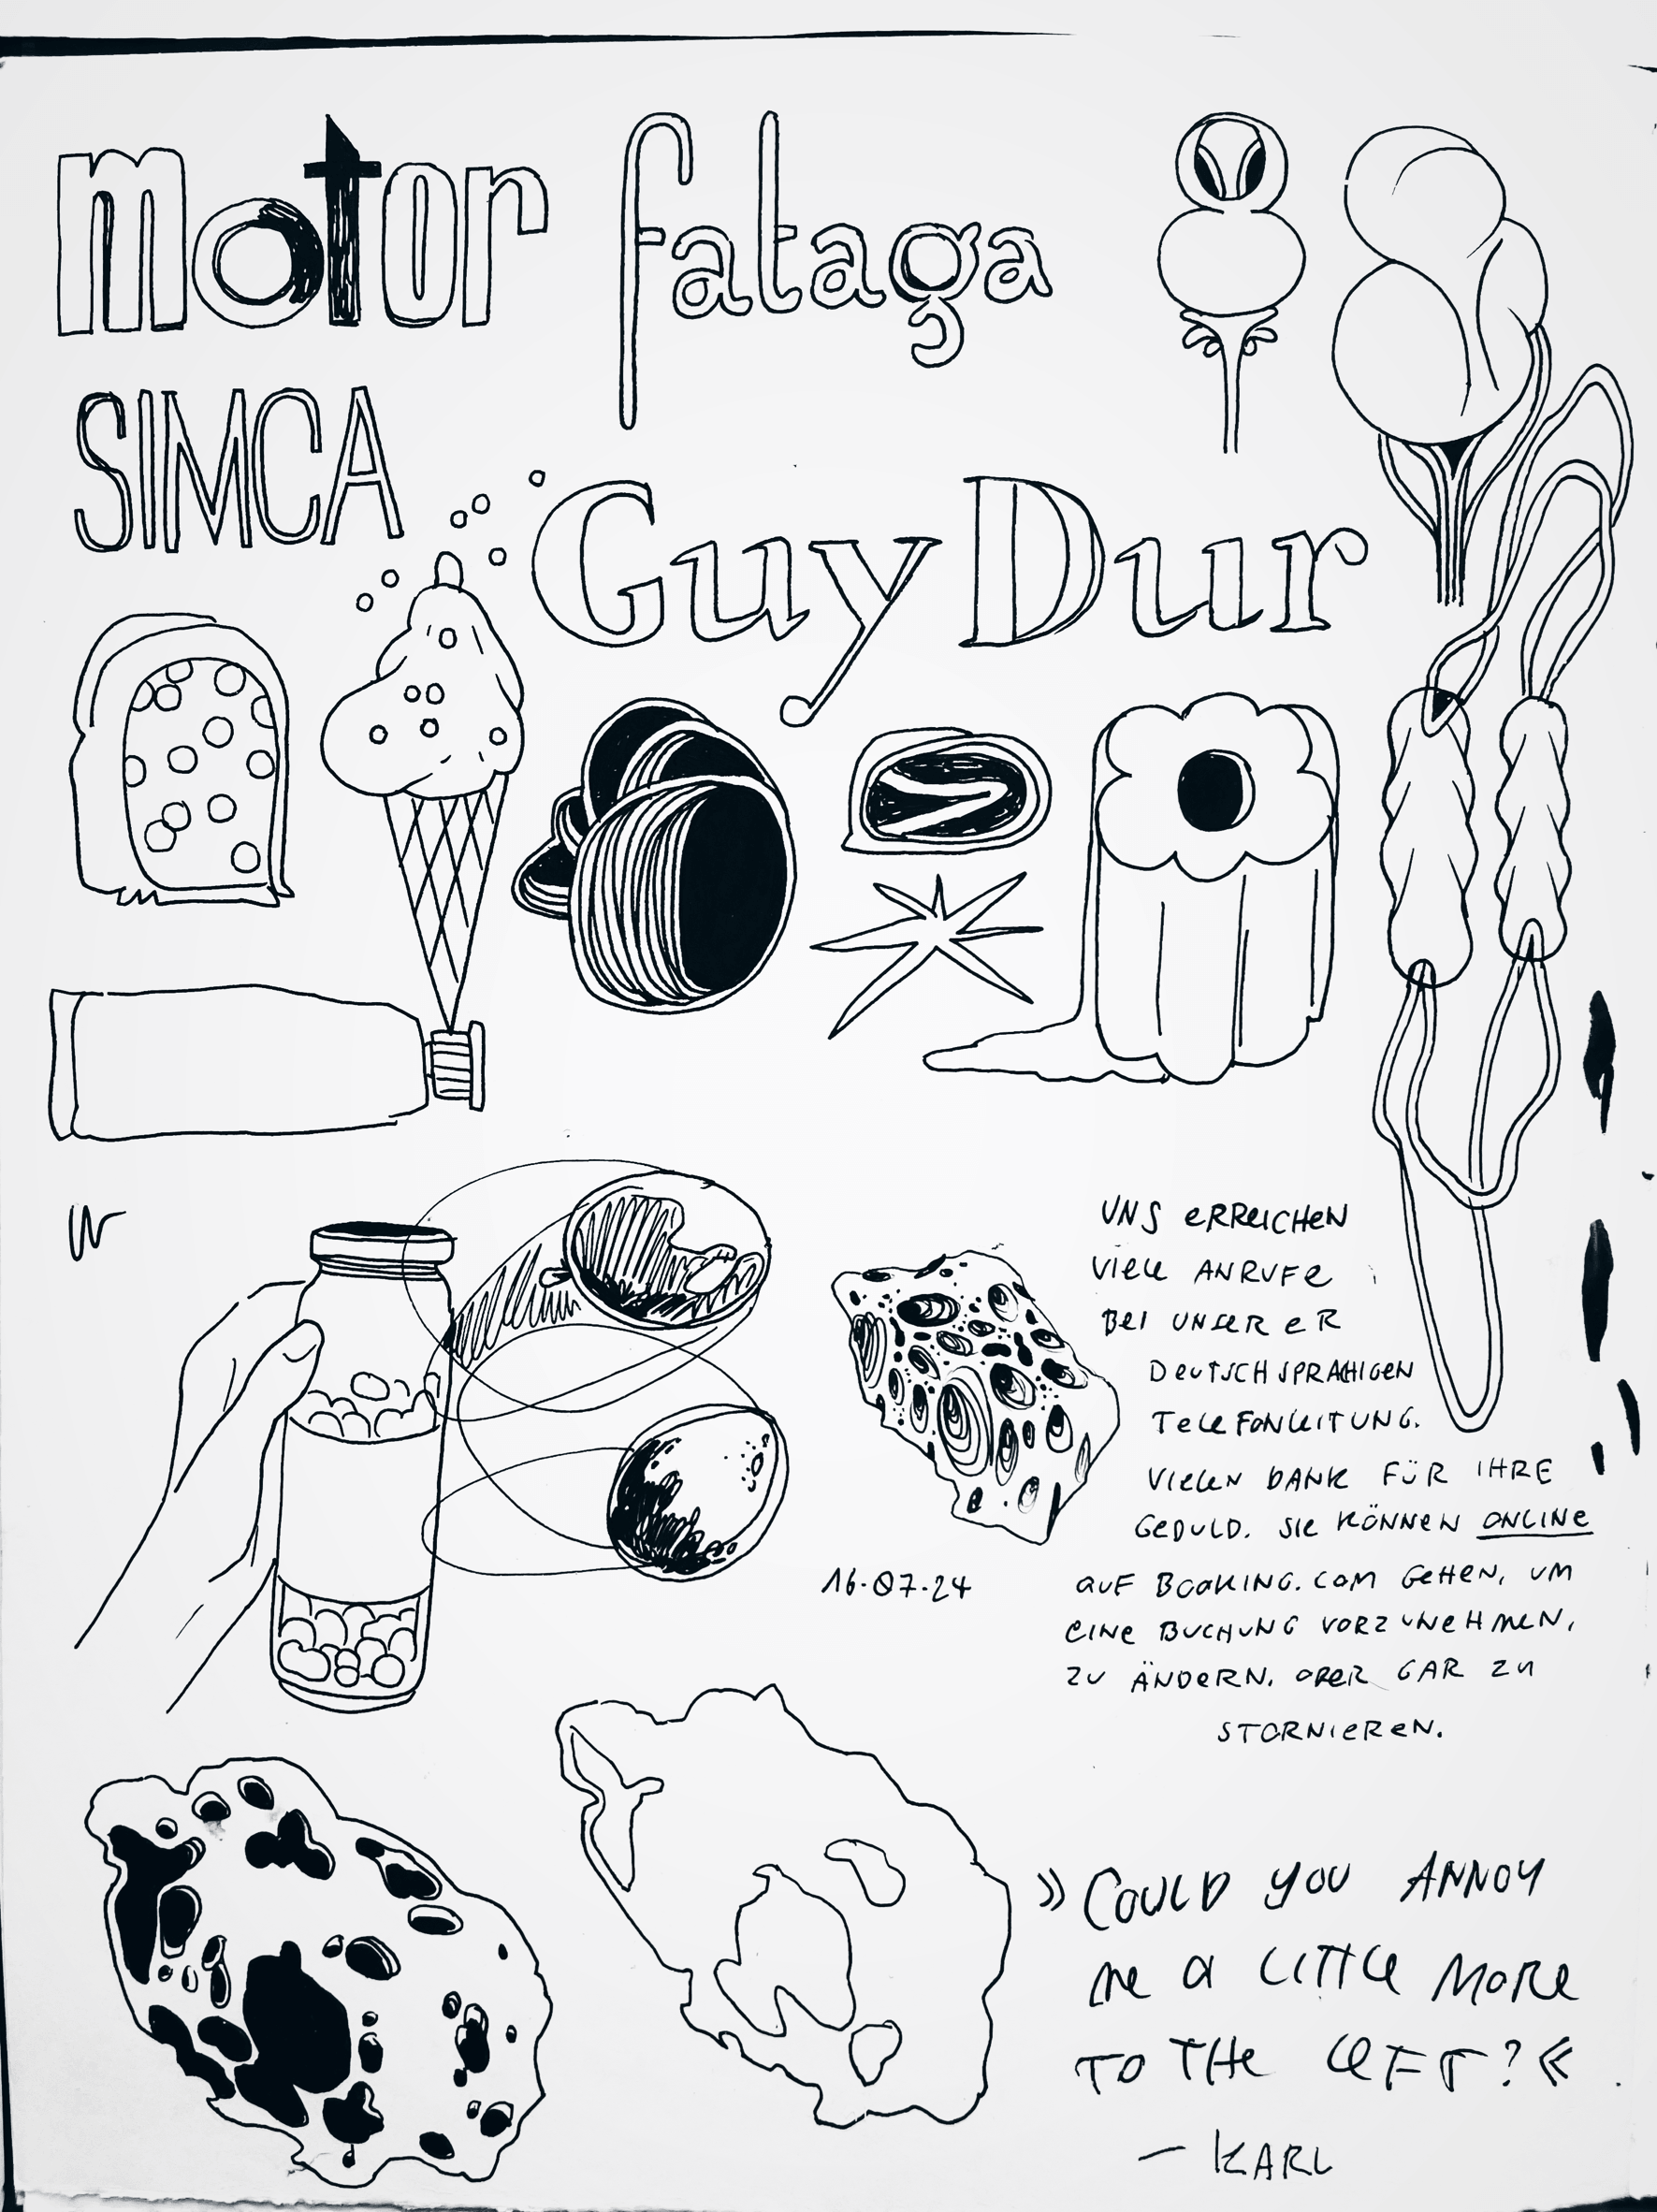 motor fataga
SIMCA
Guy Dur
UNS ERREICHEN
VIELE ANRUFE
BEI UNSERER
DEUTSCHSPRACHIGEN
TELEFONLEITUNG.
VIELEN DANK FÜR IHRE
GEDULD. SIE KÖNNEN ONLINE
AUF BOOKING.COM GEHEN, UM
EINE BUCHUNG VORZUNEHMEN,
ZU ÄNDERN, ODER GAR ZU
STORNIEREN.
16.07.24
»COULD YOU ANNOY
ME A LITTLE MORE
TO THE LEFT?«
— KARL